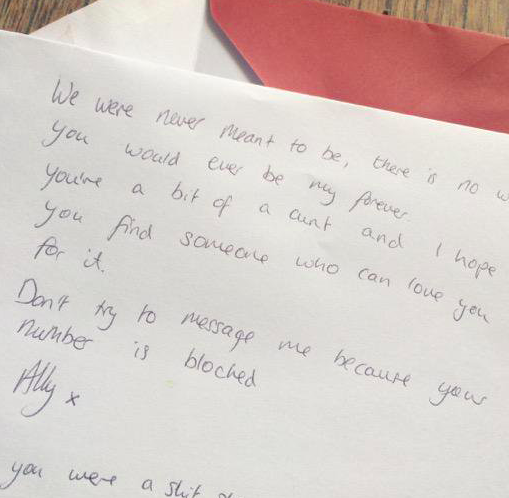 We were never meant to be, there is no w
you would ever be my forever.
You're a bit of a cunt and I hope
you find someone who can love you
for it.
Don't try to message me because your
number is blocked
Ally x
you were a shit